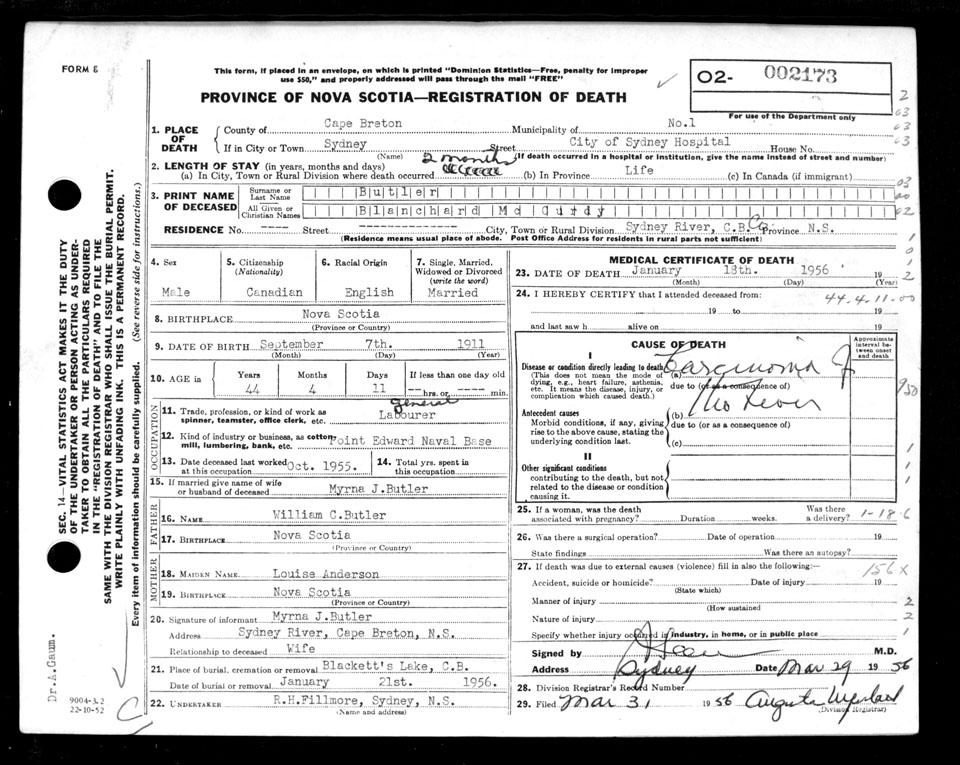 FORM 8
This form, if placed in an envelope, on which is printed "Dominion Statistics—Free, penalty for improper
use $50," and properly addressed will pass through the mail "FREE"
PROVINCE OF NOVA SCOTIA—REGISTRATION OF DEATH
O2- 002173
For use of the Department only
1. PLACE OF DEATH
County of Cape Breton Municipality of No.1
If in City or Town Sydney Street City of Sydney Hospital House No.
(Name) (If death occurred in a hospital or institution, give the name instead of street and number)
2. LENGTH OF STAY (in years, months and days) 2 months
(a) In City, Town or Rural Division where death occurred (b) In Province Life (c) In Canada (if immigrant)
3. PRINT NAME OF DECEASED
Surname or Last Name Butler
All Given or Christian Names Blanchard Mc Curdy
RESIDENCE No. ---- Street -------------- City, Town or Rural Division Sydney River, C.B. Co. Province N.S.
(Residence means usual place of abode. Post Office Address for residents in rural parts not sufficient)
4. Sex
Male
5. Citizenship (Nationality)
Canadian
6. Racial Origin
English
7. Single, Married, Widowed or Divorced (write the word)
Married
8. BIRTHPLACE Nova Scotia
(Province or Country)
9. DATE OF BIRTH September 7th. 1911
(Month) (Day) (Year)
10. AGE in Years Months Days If less than one day old
44 4 11 -- hrs. or ---- min.
OCCUPATION
11. Trade, profession, or kind of work as spinner, teamster, office clerk, etc. general Labourer
12. Kind of industry or business, as cotton mill, lumbering, bank, etc. Point Edward Naval Base
13. Date deceased last worked at this occupation Oct. 1955.
14. Total yrs. spent in this occupation
15. If married give name of wife or husband of deceased Myrna J.Butler
FATHER
16. NAME William C.Butler
17. BIRTHPLACE Nova Scotia
(Province or Country)
MOTHER
18. MAIDEN NAME Louise Anderson
19. BIRTHPLACE Nova Scotia
(Province or Country)
20. Signature of informant Myrna J.Butler
Address Sydney River, Cape Breton, N.S.
Relationship to deceased Wife
21. Place of burial, cremation or removal Blackett's Lake, C.B.
Date of burial or removal January 21st. 1956.
22. UNDERTAKER R.H.Fillmore, Sydney, N.S.
(Name and address)
MEDICAL CERTIFICATE OF DEATH
23. DATE OF DEATH January 18th. 1956 19
(Month) (Day) (Year)
24. I HEREBY CERTIFY that I attended deceased from:
44-4-11-00
19 to 19
and last saw h alive on 19
CAUSE OF DEATH
Approximate interval between onset and death
I
Disease or condition directly leading to death (a) Carcinoma of
(This does not mean the mode of dying, e.g., heart failure, asthenia, etc. It means the disease, injury, or complication which caused death.)
due to (or as a consequence of)
Antecedent causes (b)
Morbid conditions, if any, giving rise to the above cause, stating the underlying condition last.
due to (or as a consequence of)
(c)
II
Other significant conditions
contributing to the death, but not related to the disease or condition causing it.
25. If a woman, was the death associated with pregnancy? Duration weeks. Was there a delivery? 1-18-6
26. Was there a surgical operation? Date of operation 19
State findings Was there an autopsy?
27. If death was due to external causes (violence) fill in also the following:— 156X
Accident, suicide or homicide? Date of injury 19
(State which)
Manner of injury
(How sustained
Nature of injury
Specify whether injury occurred in industry, in home, or in public place
Signed by M.D.
Address Sydney Date Mar 29 19 56
28. Division Registrar's Record Number
29. Filed Mar 31 19 56 Augusta
(Division Registrar)
SEC. 14—VITAL STATISTICS ACT MAKES IT THE DUTY
OF THE UNDERTAKER OR PERSON ACTING AS UNDER-
TAKER TO OBTAIN ALL THE PARTICULARS REQUIRED
IN THE "REGISTRATION OF DEATH" AND TO FILE THE
SAME WITH THE DIVISION REGISTRAR WHO SHALL ISSUE THE BURIAL PERMIT.
WRITE PLAINLY WITH UNFADING INK. THIS IS A PERMANENT RECORD.
Every item of information should be carefully supplied. (See reverse side for instructions.)
Dr.A.Gaum.
9004-3.2
22-10-52